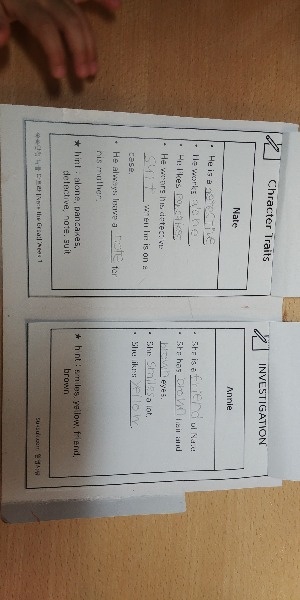 Chracter Traits
Nate
• He is a detective
• He works alone.
• He likes pancakes
• He wears his detective
suit when he is on a
case.
• He always leave a note for
his mother.
★ hint : alone, pancakes,
detective, note, suit
INVESTIGATION
Annie
• She is a friend of Nate
• She has brown hair and
brown eyes.
• She smiles a lot.
• She likes yellow.
★ hint : smiles, yellow, friend,
brown